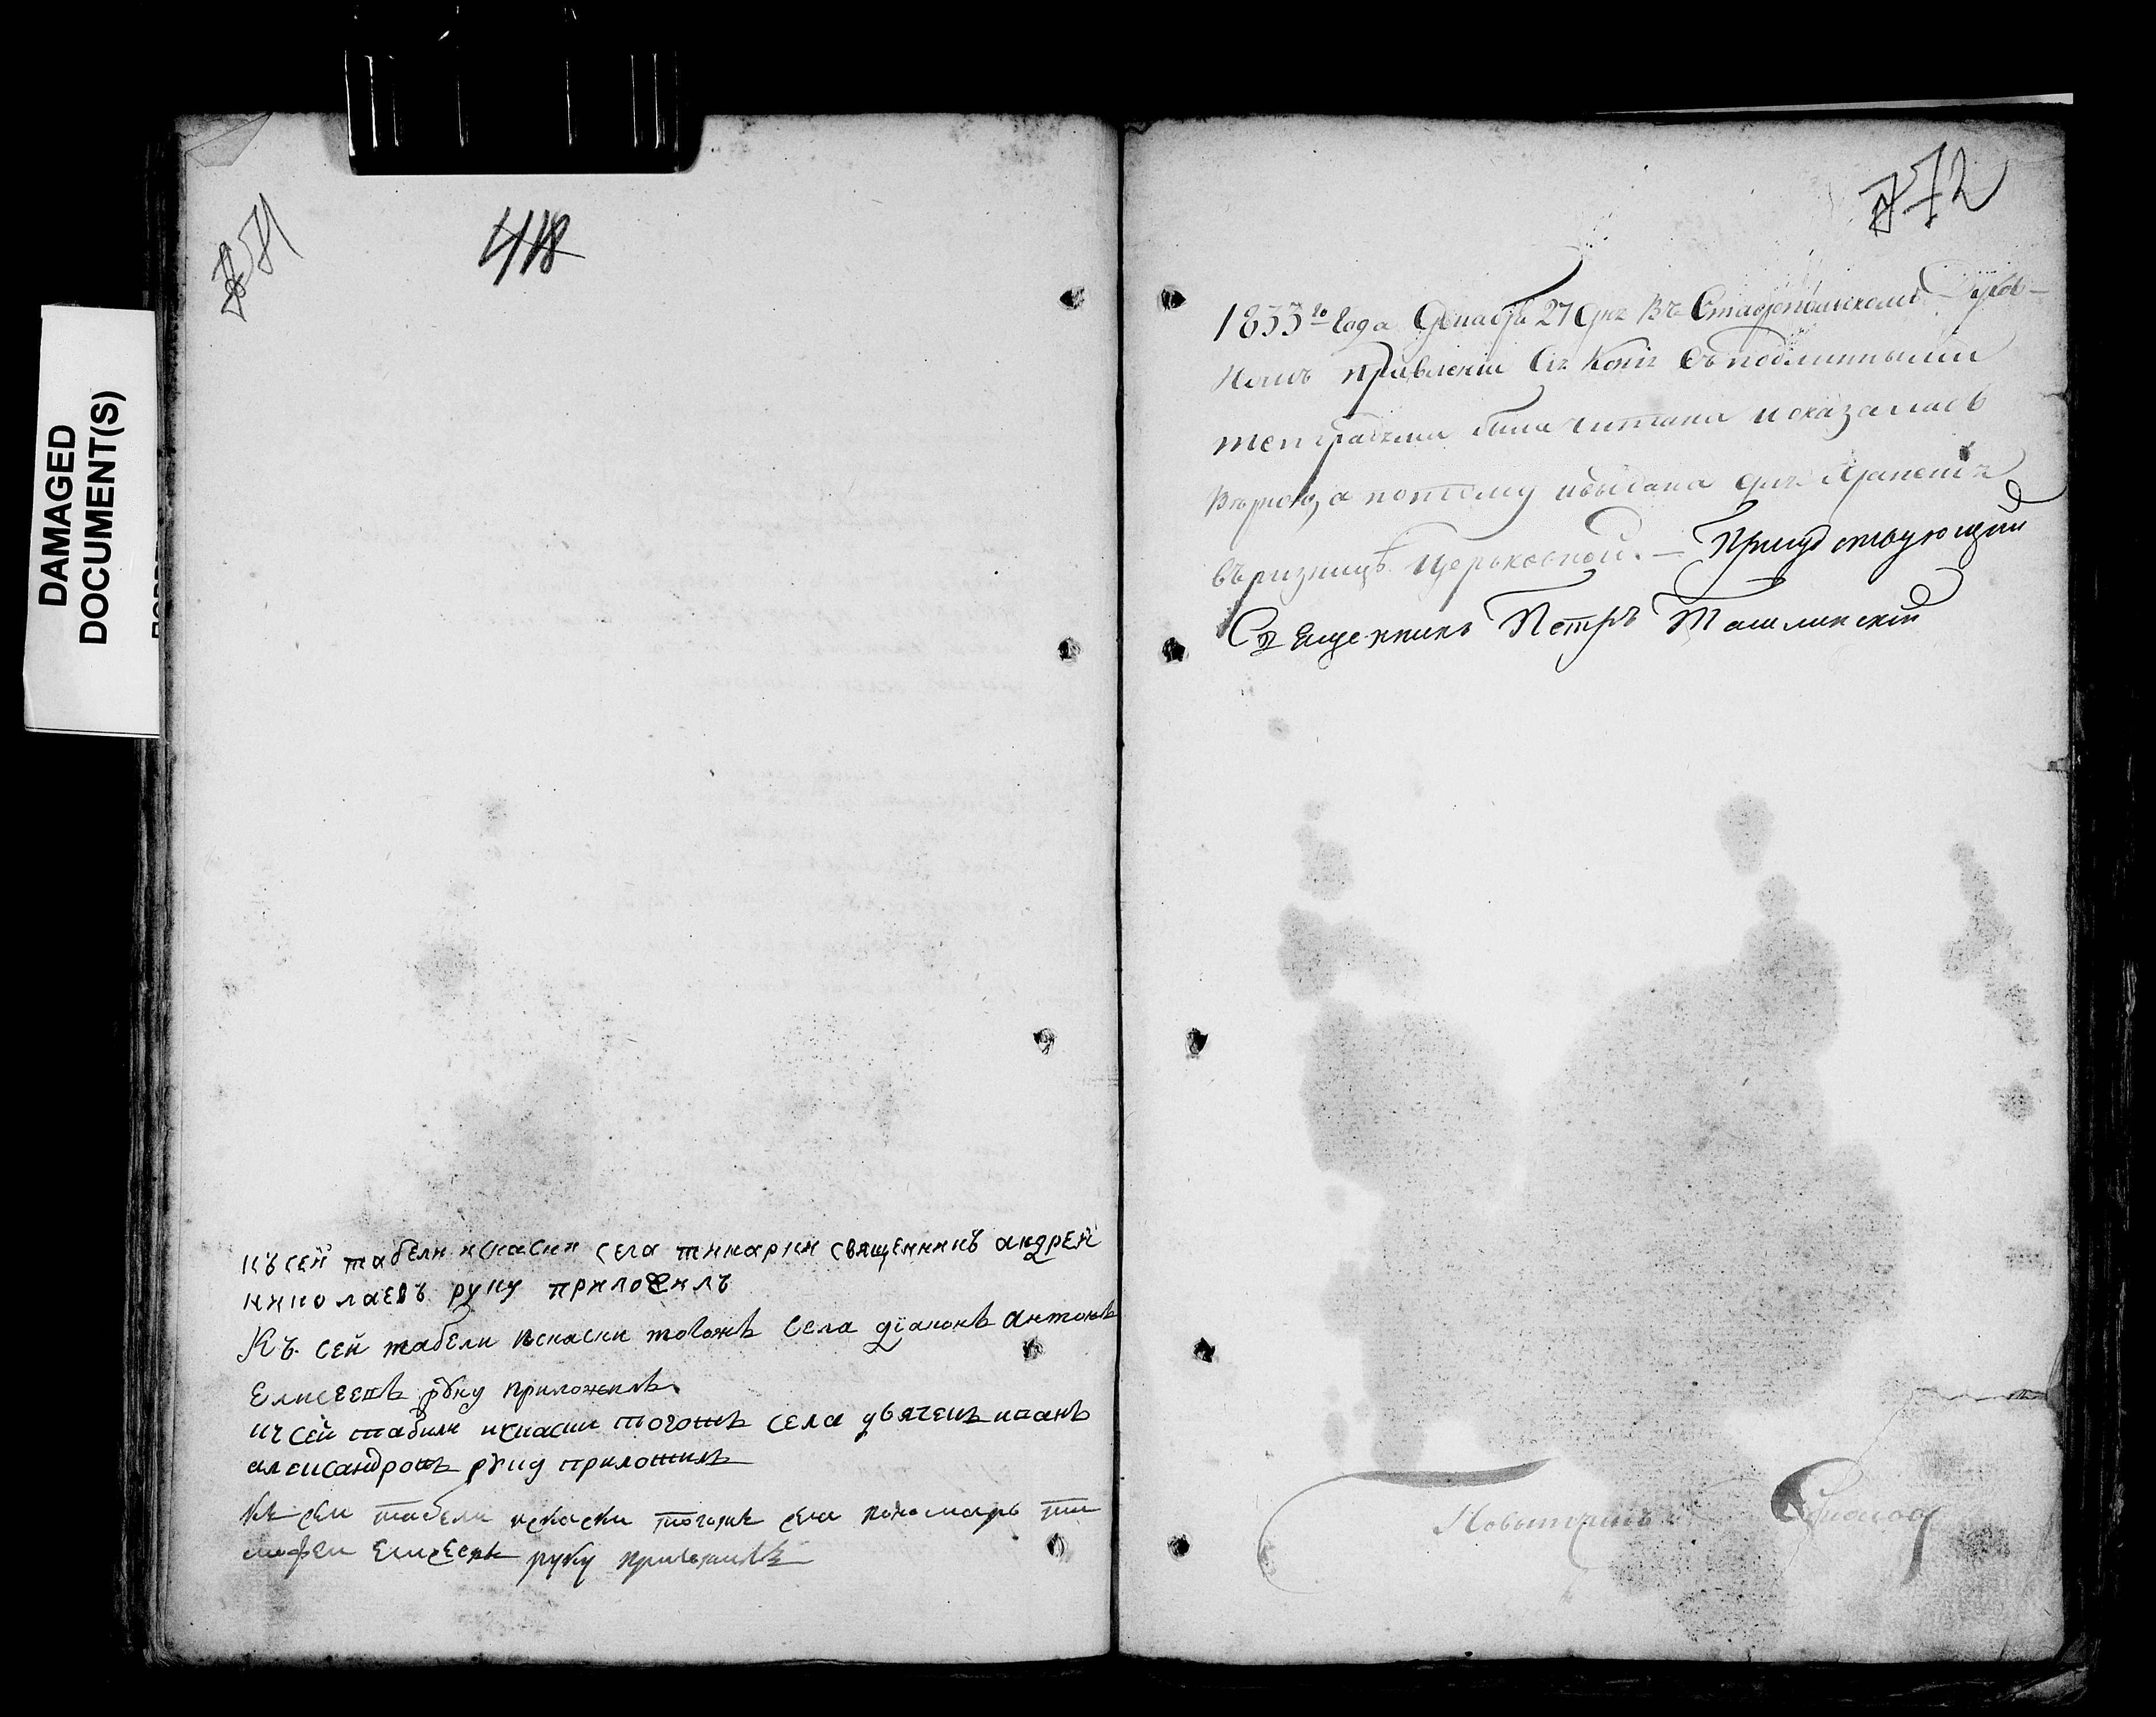 DAMAGED
DOCUMENT(S)
71
418
къ сей табели искаски села тинарки священникъ андрей
николаевъ руку приложилъ
Къ сей табели искаски тогожъ села діаконъ антонъ
Елисеевъ руку приложилъ
къ сей табили искаски тогожъ села дьячекъ иванъ
александровъ руку приложилъ
къ сеи табели искаски тогожъ села пономарь ти
мофеи Елисеевъ руку приложилъ
72
1833го Года Декабря 27 дня Въ Ставропольскомъ Духов-
номъ правленіи Сія Копія Съ подлинными
тетрадьми была читана и оказалась
Вѣрною, а потому и выдана для храненія
въ ризницѣ Церьковной. — Присудствующій
Священникъ Петръ Ташлинскій
Повытчикъ